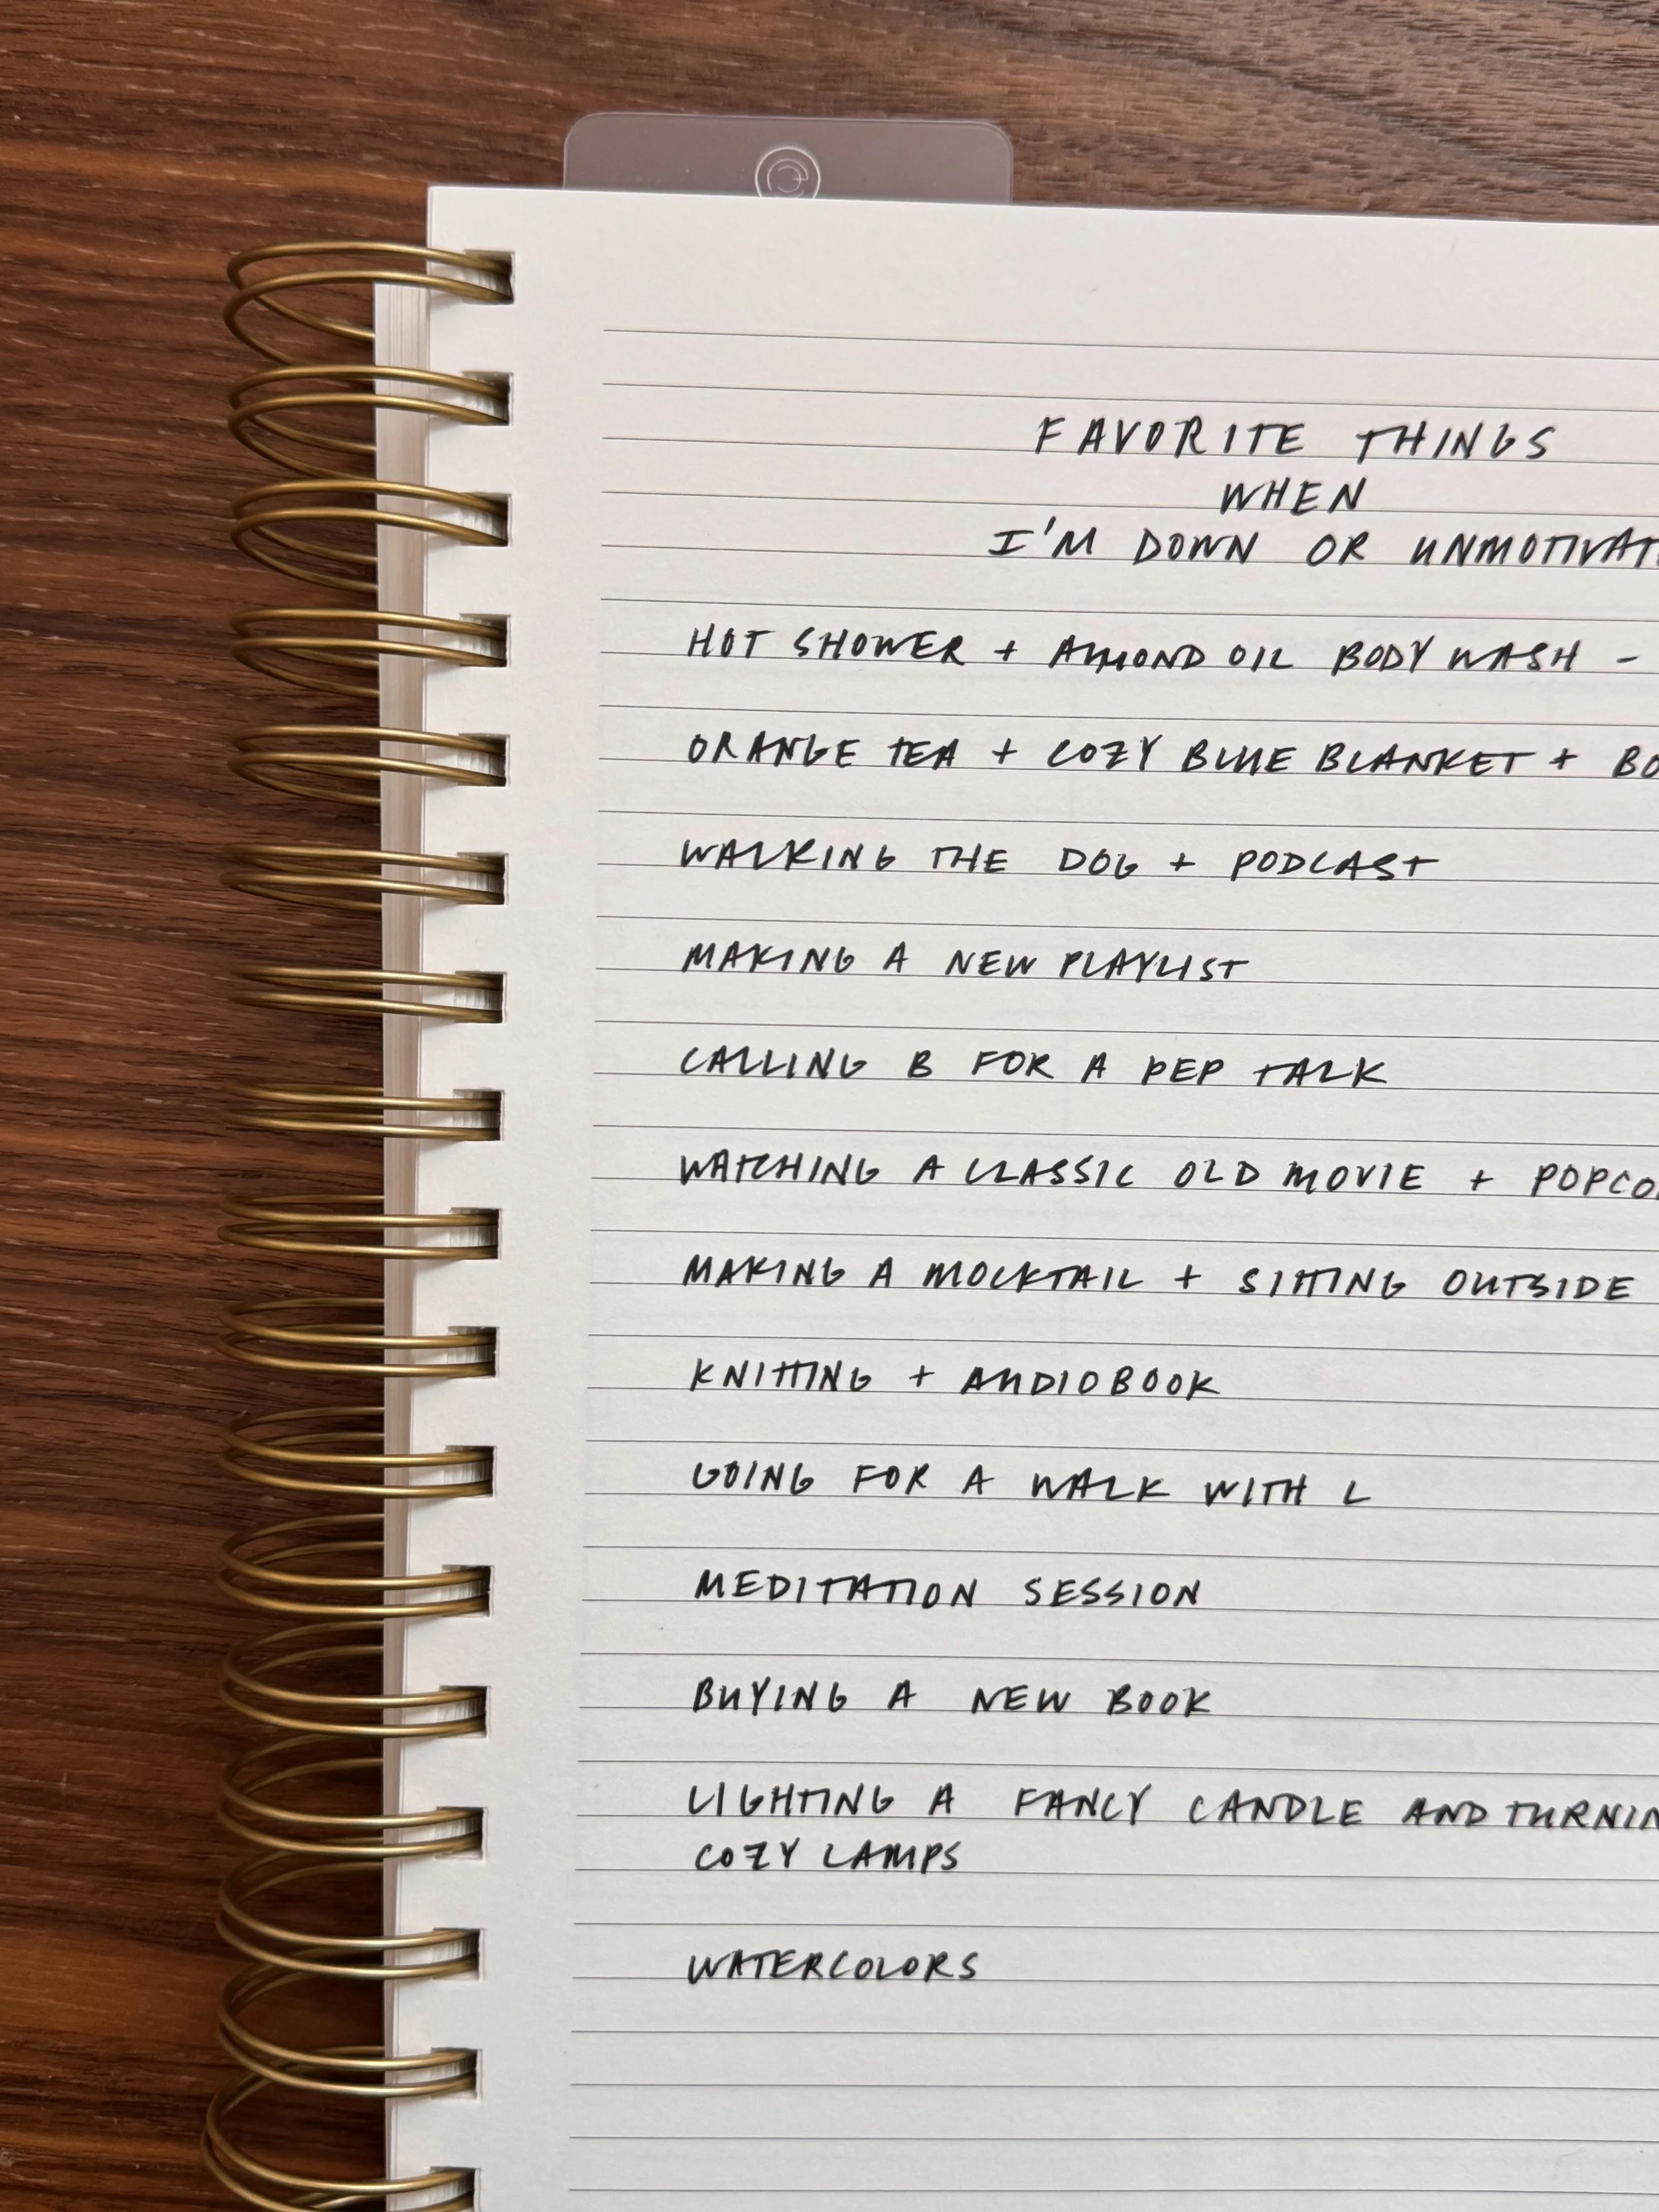 FAVORITE THINGS
WHEN
I'M DOWN OR UNMOTIVAT
HOT SHOWER + ALMOND OIL BODY WASH -
ORANGE TEA + COZY BLUE BLANKET + BO
WALKING THE DOG + PODCAST
MAKING A NEW PLAYLIST
CALLING B FOR A PEP TALK
WATCHING A CLASSIC OLD MOVIE + POPCO
MAKING A MOCKTAIL + SITTING OUTSIDE
KNITTING + AUDIOBOOK
GOING FOR A WALK WITH L
MEDITATION SESSION
BUYING A NEW BOOK
LIGHTING A FANCY CANDLE AND TURNIN
COZY LAMPS
WATERCOLORS